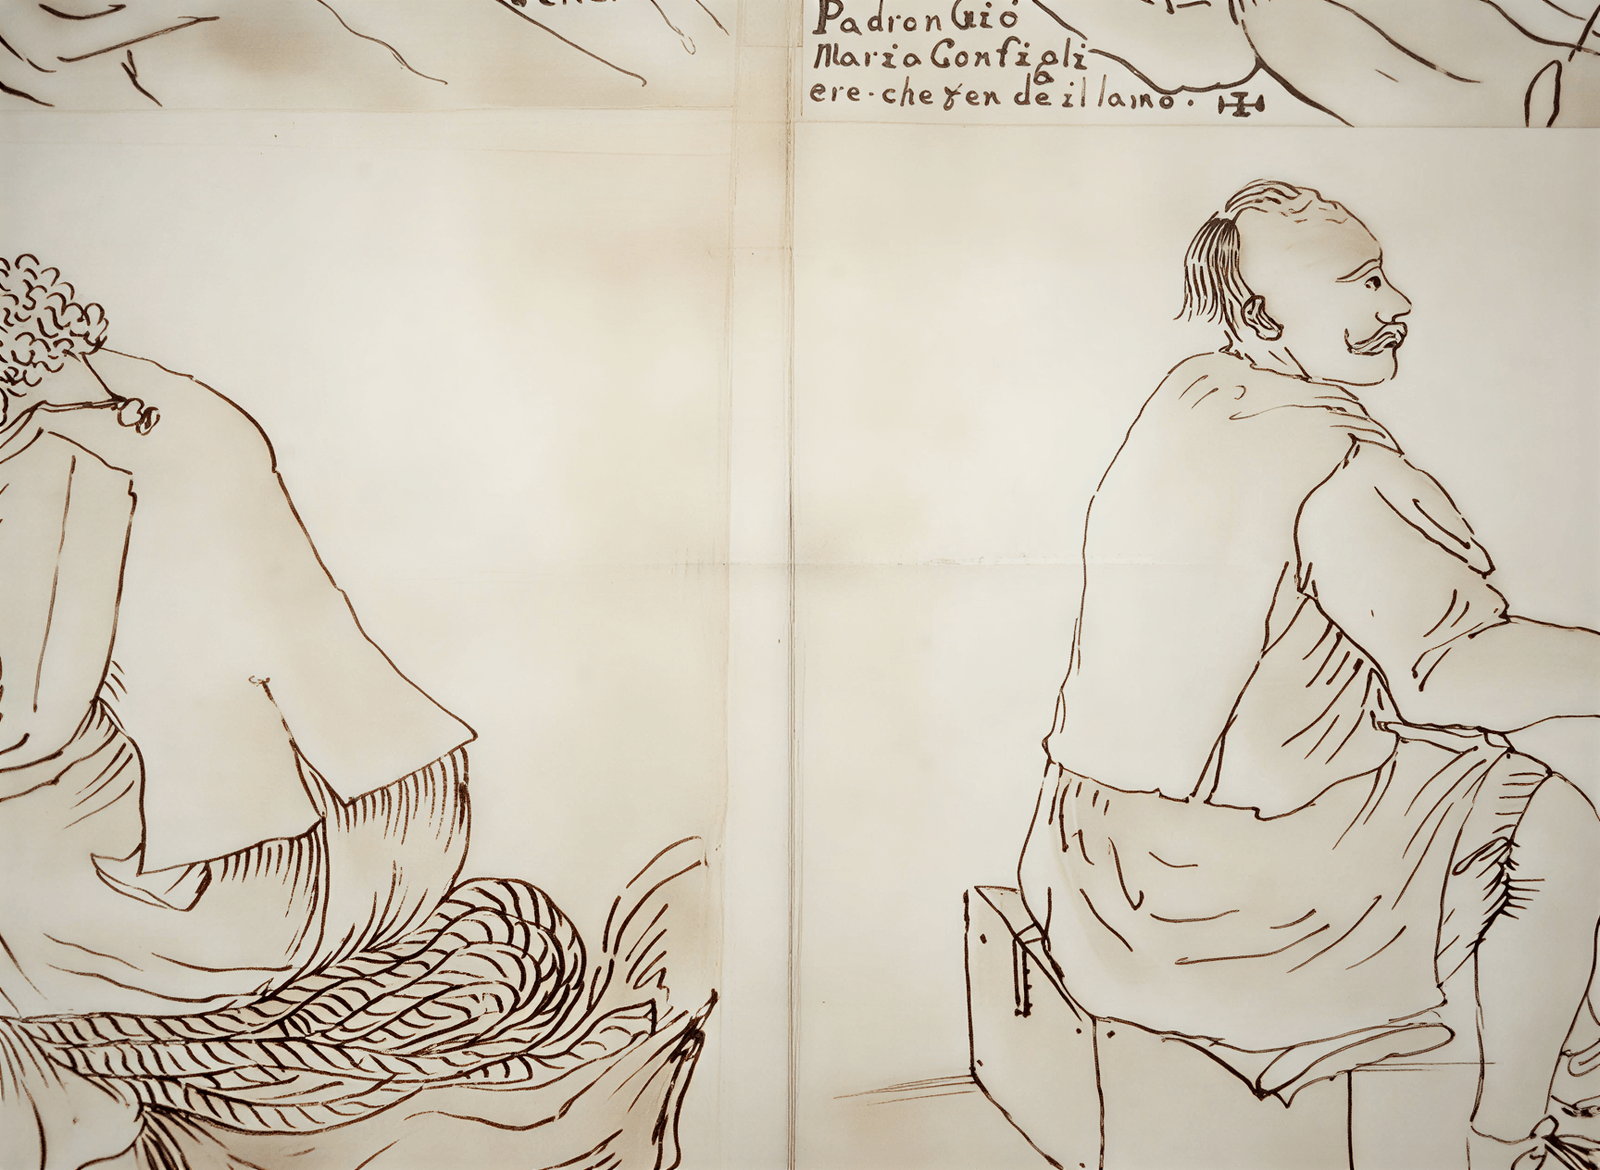 Padron Gió
Maria Consigli
ere · che ven de il lamo ·